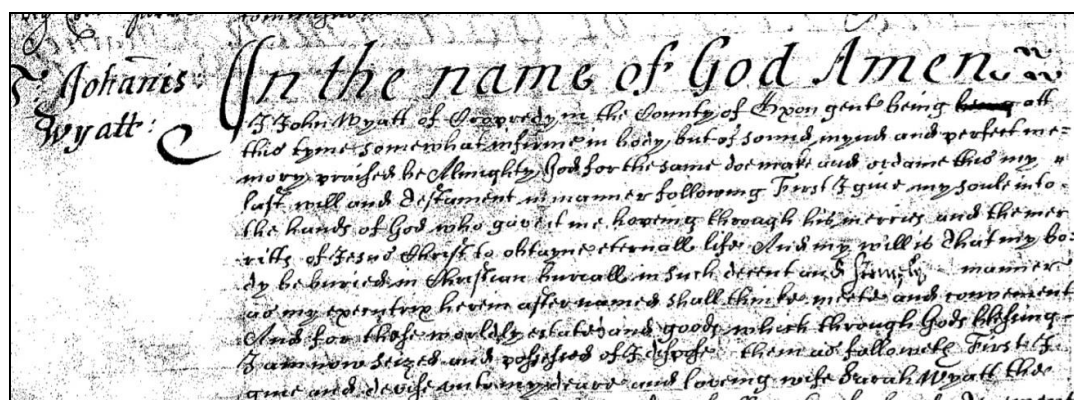 T: Johanis:
Wyatt:
In the name of God Amen
I John Wyatt of in the County of Oxon gent being att
this tyme somewhat infirme in body but of sound mynd and perfect me=
mory praised be Almighty God for the same doe make and ordaine this my
last will and Testament in manner following First I give my soule into
the hands of God who gave it me hopeing through his mercies and the mer
rits of Jesus Christ to obtayne eternall life And my will is that my bo=
dy be buried in Christian buriall in such decent and seemely manner
as my executrix herein after named shall thinke meete and convenient
And for those worldly estates and goods which through Gods blessing
I am now seized and possessed of I dispose them as followeth First I
give and devise unto my deare and loveing wife Sarah Wyatt the